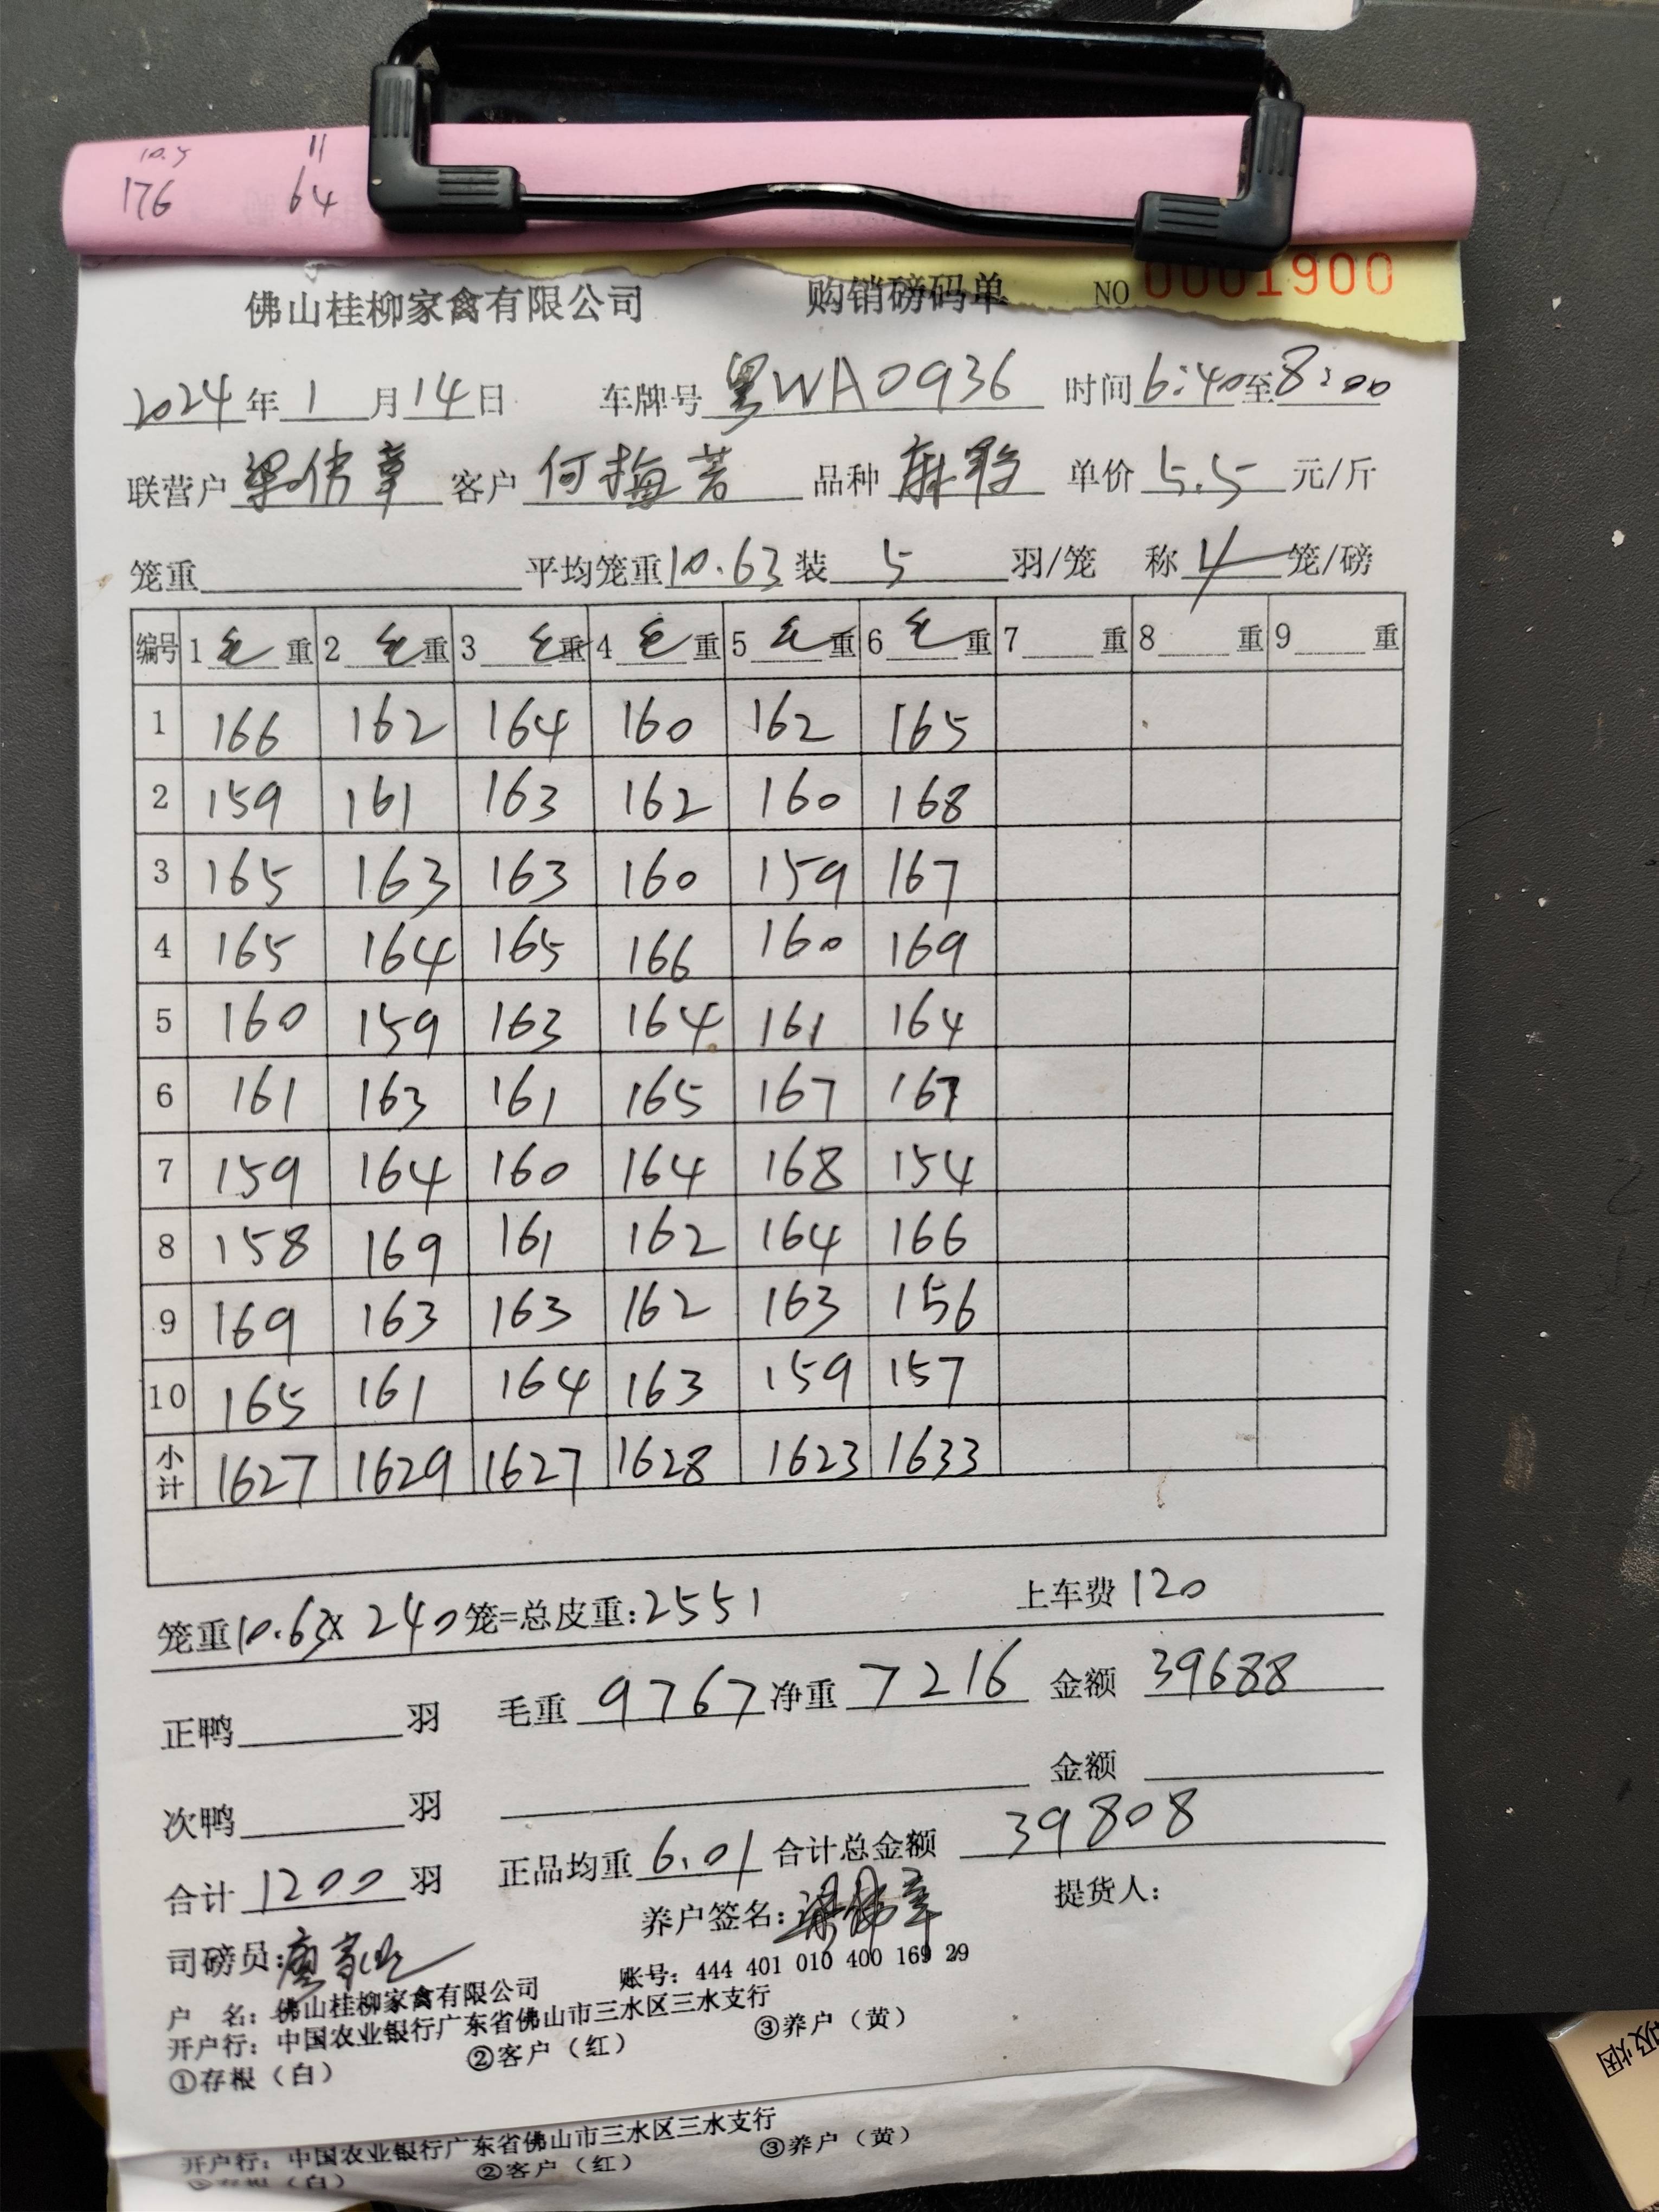 10.5 11
176 64
佛山桂柳家禽有限公司 购销磅码单 NO 0001900
2024年1月14日 车牌号 粤WA0936 时间 6:40至8:00
联营户 梁伟章 客户 何梅芳 品种 麻鸭 单价 5.5 元/斤
笼重 平均笼重 10.63 装 5 羽/笼 称 4 笼/磅
编号 1 毛 重 2 毛 重 3 毛 重 4 毛 重 5 毛 重 6 毛 重 7 重 8 重 9 重
1 166 162 164 160 162 165
2 159 161 163 162 160 168
3 165 163 163 160 159 167
4 165 164 165 166 160 169
5 160 159 163 164 161 164
6 161 163 161 165 167 167
7 159 164 160 164 168 154
8 158 169 161 162 164 166
9 169 163 163 162 163 156
10 165 161 164 163 159 157
小计 1627 1629 1627 1628 1623 1633
笼重 10.63 X 240 笼=总皮重: 2551 上车费 120
正鸭 羽 毛重 9767 净重 7216 金额 39688
次鸭 羽 金额
合计 1200 羽 正品均重 6.01 合计总金额 39808
司磅员: 养户签名: 梁伟章 提货人:
户 名: 佛山桂柳家禽有限公司 账号: 444 401 010 400 169 29
开户行: 中国农业银行广东省佛山市三水区三水支行
①存根(白) ②客户(红) ③养户(黄)
开户行: 中国农业银行广东省佛山市三水区三水支行
①存根(白) ②客户(红) ③养户(黄)